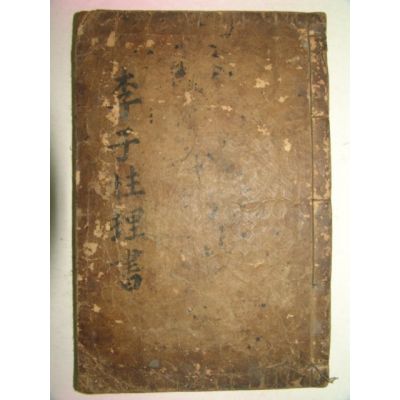 李子性理書